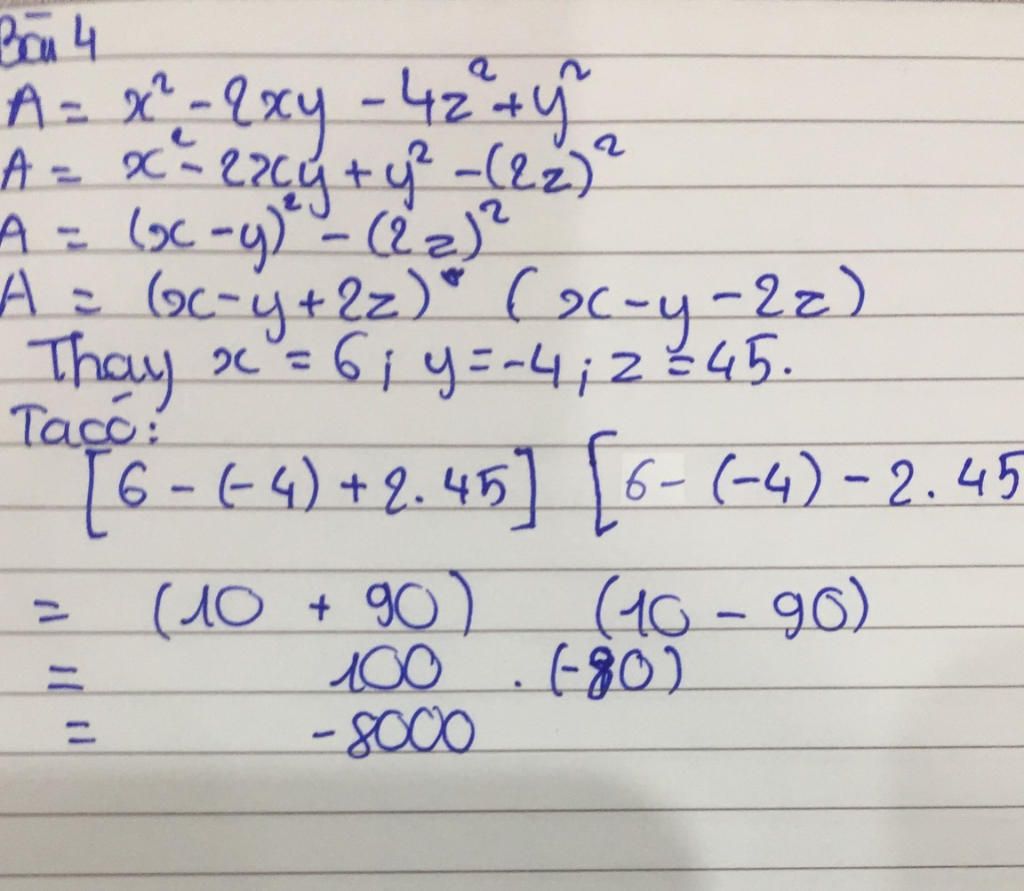 Bài 4
A = x² - 2xy - 4z² + y²
A = x² - 2xy + y² - (2z)²
A = (x - y)² - (2z)²
A = (x - y + 2z) (x - y - 2z)
Thay x = 6 ; y = -4 ; z = 45.
Ta có:
[6 - (-4) + 2.45] [6 - (-4) - 2.45
= (10 + 90) (10 - 90)
= 100 . (-80)
= -8000